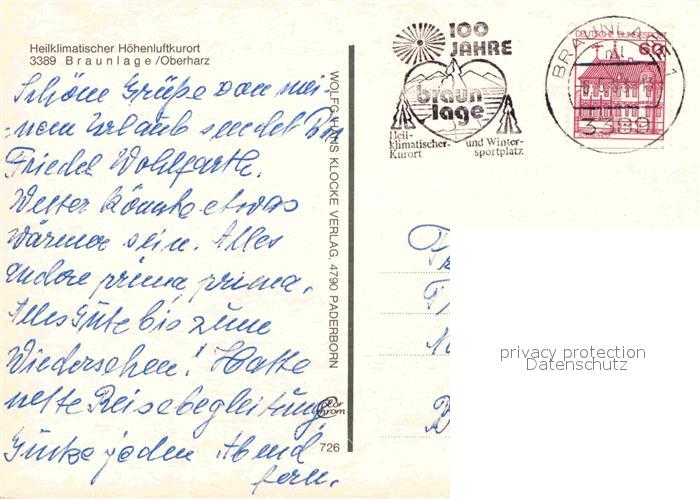 Heilklimatischer Höhenluftkurort
3389 Braunlage/Oberharz
Schöne Grüße von mei-
nem Urlaub sendet
Friedel Wohlfarth.
Wetter könnte etwas
wärmer sein. Alles
andere prima, prima.
Alles Gute bis zum
Wiedersehen! Hatte
nette Reisebegleitung
jeden Abend
fern.
WOLFG. HANS KLOCKE VERLAG, 4790 PADERBORN
726
100
JAHRE
braun
lage
Heil-
klimatischer-
Kurort
und Winter-
sportplatz
DEUTSCHE BUNDESPOST
60
BRAUNLAGE 1
3389
privacy protection
Datenschutz